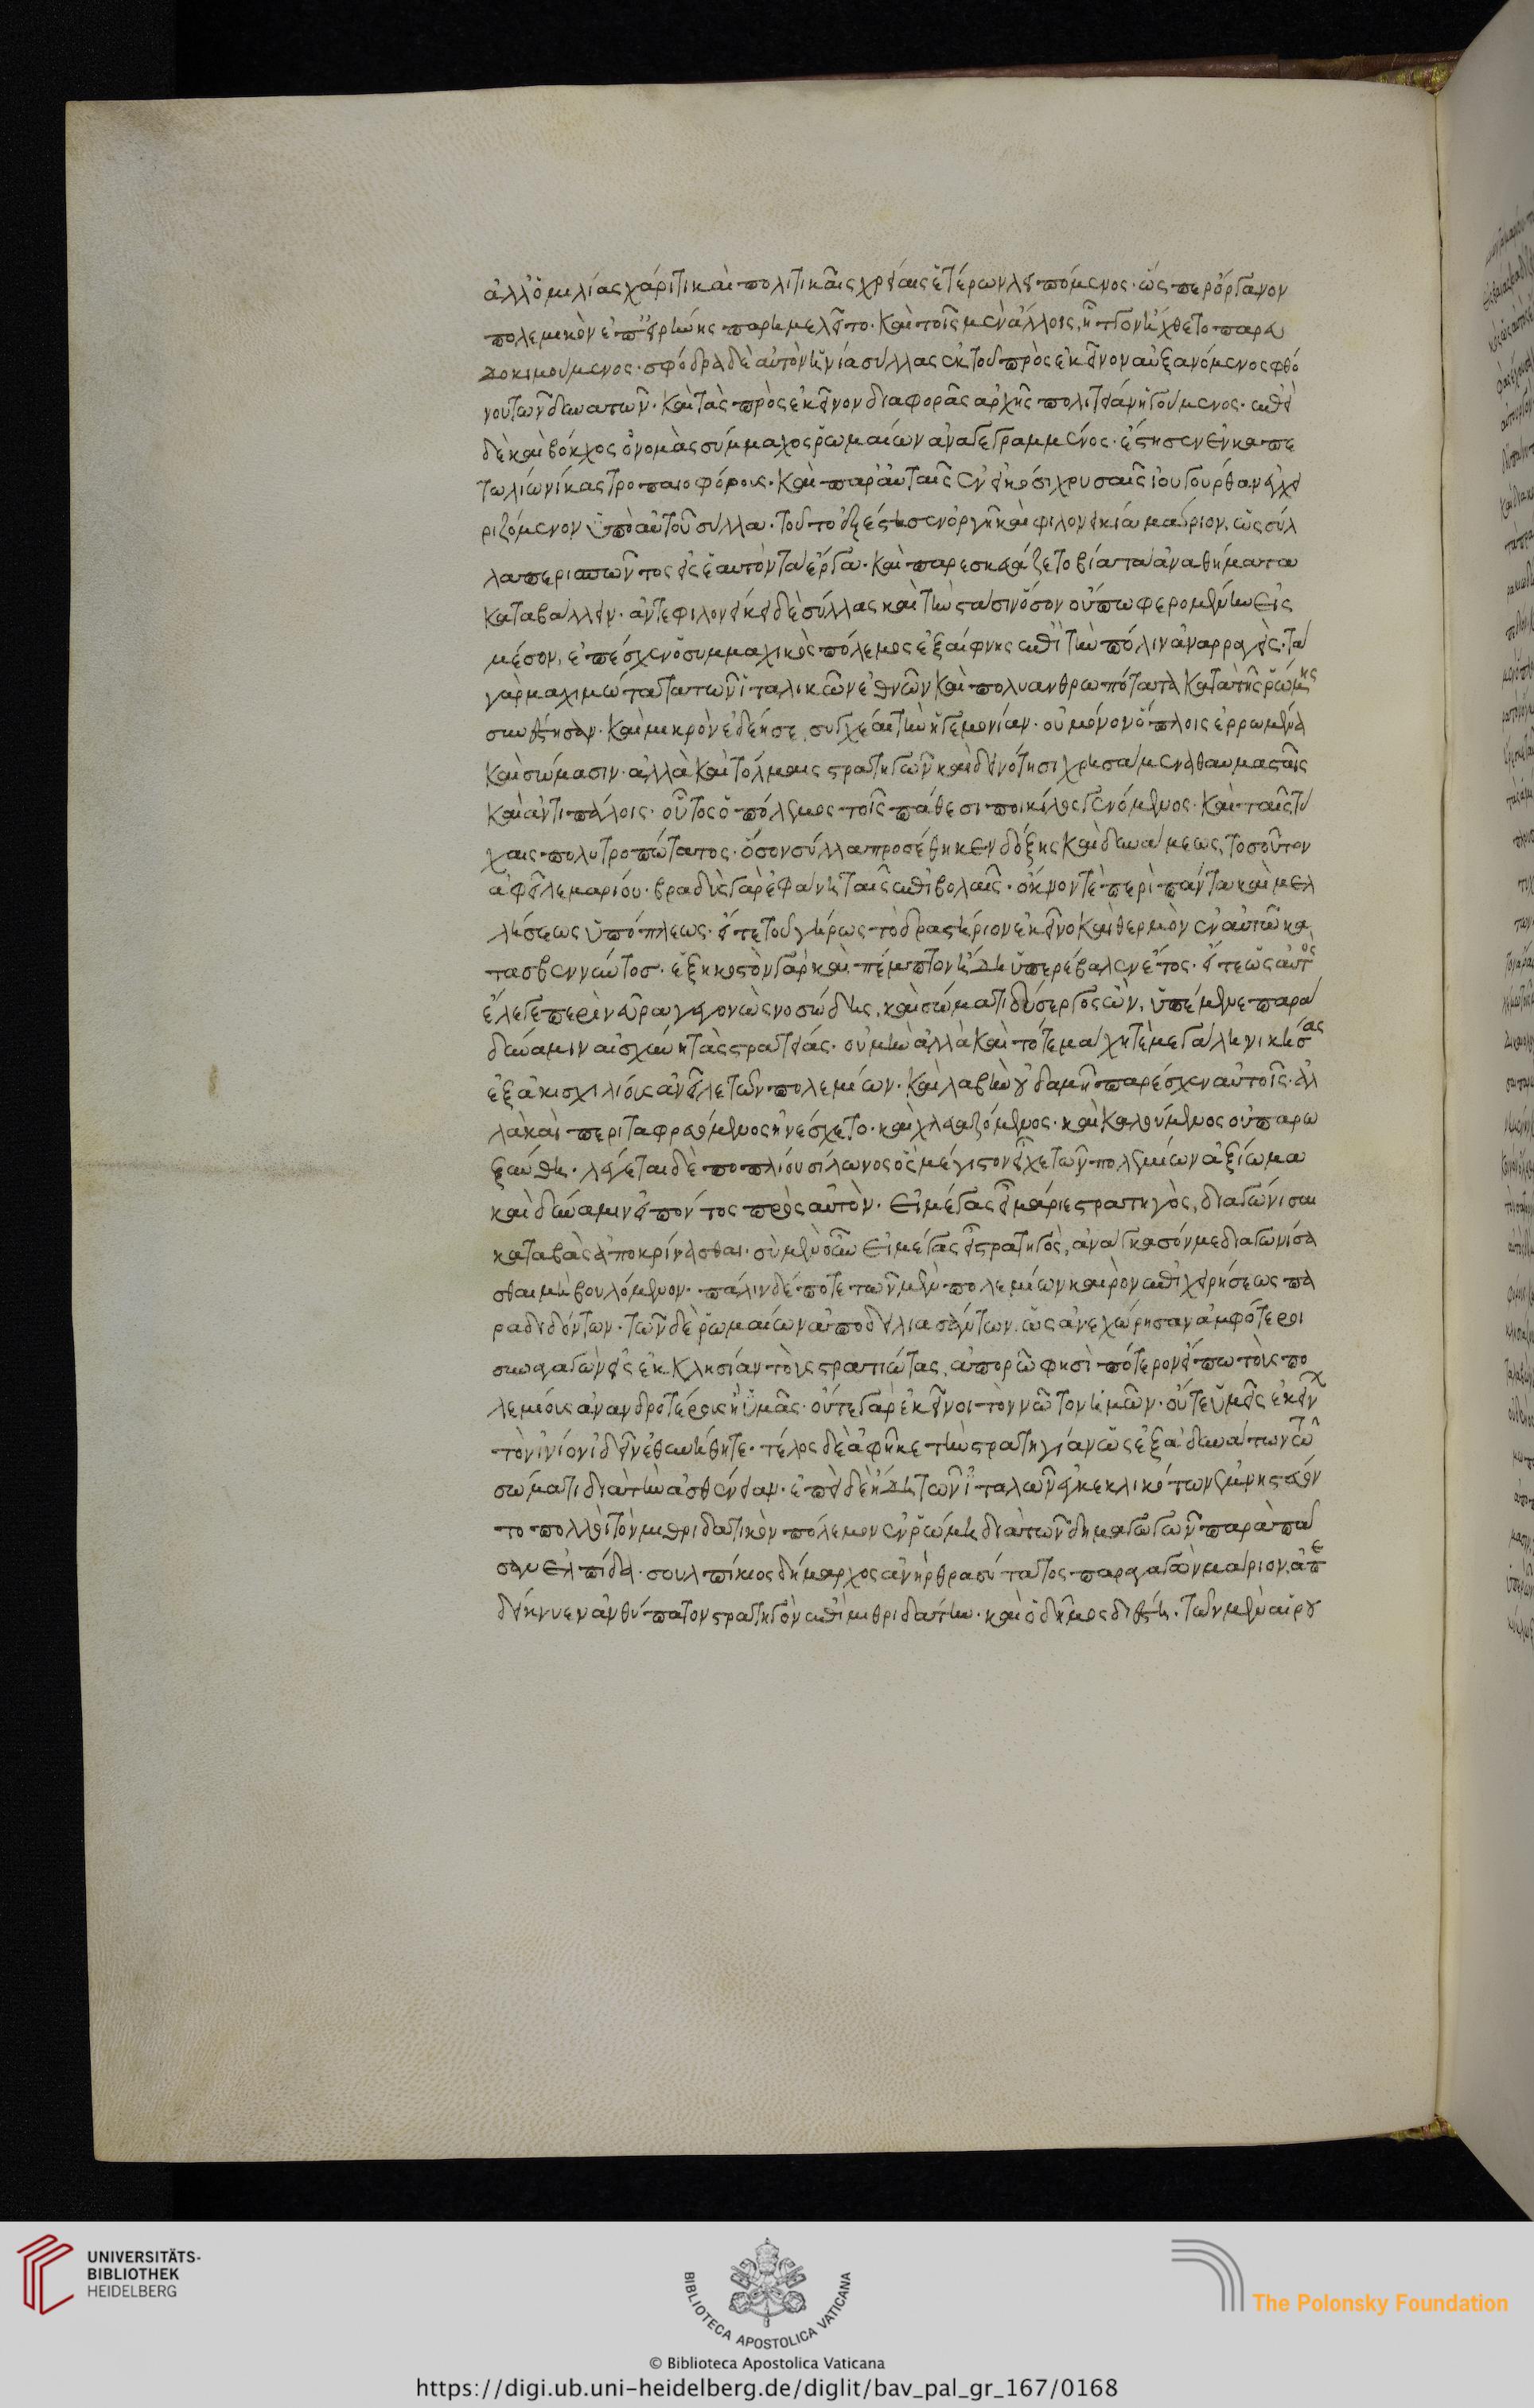 ἀλλ' ὁμιλίας χάριτι καὶ πολιτικαῖς χρείαις ἑτέρων λειπόμενος· ὥσπερ ὄργανον
πολεμικὸν ἐπ' εἰρήνης παρημελεῖτο· καὶ τοῖς μὲν ἄλλοις, ἧττον ἤχθετο παρευ
δοκιμούμενος· σφόδρα δὲ αὐτὸν ἠνία σύλλας ἐκ τοῦ πρὸς ἐκεῖνον αὐξανόμενος φθό
νου τῶν δυνατῶν· καὶ τὰς πρὸς ἐκεῖνον διαφορὰς ἀρχῆς πολιτείαν ἡγούμενος· ἐπεὶ
δὲ καὶ βόκχος ὁ νομὰς σύμμαχος ῥωμαίων ἀναγεγραμμένος· ἔστησεν ἐν καπε
τωλίω νίκας τροπαιοφόρους· καὶ παρ' αὐταῖς ἐν εἰκόσι χρυσαῖς ἰουγούρθαν ἐγχει
ριζόμενον ὑπὸ αὐτοῦ σύλλα· τοῦτο ἐξέστησεν ὀργῆ καὶ φιλονεικία μάριον, ὡς σύλ
λα περισπῶντος εἰς ἑαυτὸν τὰ ἔργα· καὶ παρεσκευάζετο βία τὰ ἀναθήματα
καταβάλλειν· ἀντεφιλονείκει δὲ σύλλας καὶ τὴν στάσιν ὅσον οὔπω φερομένην εἰς
μέσον, ἐπέσχεν ὁ συμμαχικὸς πόλεμος ἐξαίφνης ἐπὶ τὴν πόλιν ἀναρραγείς· τὰ
γὰρ μαχιμώτατα τῶν ἰταλικῶν ἐθνῶν καὶ πολυανθρωπότατα κατὰ τῆς ῥώμης
συνέστησαν· καὶ μικρὸν ἐδέησε συγχέαι τὴν ἡγεμονίαν· οὐ μόνον ὅπλοις ἐρρωμένα
καὶ σώμασιν· ἀλλὰ καὶ τόλμαις στρατηγῶν καὶ δεινότησι χρησάμενα θαυμασταῖς
καὶ ἀντιπάλοις· οὗτος ὁ πόλεμος τοῖς πάθεσι ποικίλος γενόμενος· καὶ ταῖς τύ
χαις πολυτροπώτατος· ὅσον σύλλα προσέθηκεν δόξης καὶ δυνάμεως, τοσοῦτον
ἀφεῖλε μαρίου· βραδὺς γὰρ ἐφάνη ταῖς ἐπιβολαῖς· ὄκνου τὲ περὶ πάντα καὶ μελ
λήσεως ὑπόπλεως· εἴτε τοῦ γήρως τὸ δραστήριον ἐκεῖνο καὶ θερμὸν ἐν αὐτῶ κα
τασβεννύντος· ἑξηκοστὸν γὰρ καὶ πέμπτον ἤδη ὑπερέβαλεν ἔτος· εἴτε ὡς αὐτὸς
ἔλεγε περὶ νεῦρα γεγονὼς νοσώδης, καὶ σώματι δύσεργος ὢν, ὑπέμενε παρὰ
δύναμιν αἰσχύνη τὰς στρατείας· οὐ μὴν ἀλλὰ καὶ τότε μάχη τὲ μεγάλη νικήσας
ἑξακισχιλίους ἀνεῖλε τῶν πολεμίων· καὶ λαβὴν οὐδαμῆ παρέσχεν αὐτοῖς· ἀλ
λὰ καὶ περιταφρευόμενος ἠνέσχετο· καὶ χλευαζόμενος· καὶ καλούμενος οὐ παρω
ξύνθη· λέγεται δὲ ποπλίου σίλωνος ὃς μέγιστον εἶχε τῶν πολεμίων ἀξίωμα
καὶ δύναμιν εἰπόντος πρὸς αὐτὸν· εἰ μέγας εἶ μάριε στρατηγὸς, διαγώνισαι
καταβὰς ἀποκρίνασθαι· σὺ μὲν οὖν εἰ μέγας εἶ στρατηγὸς, ἀνάγκασόν με διαγωνίσα
σθαι μὴ βουλόμενον· πάλιν δέ ποτε τῶν μὲν πολεμίων καιρὸν ἐπιχειρήσεως πα
ραδιδόντων· τῶν δὲ ῥωμαίων ἀποδειλιασάντων, ὡς ἀνεχώρησαν ἀμφότεροι
συναγαγὼν εἰς ἐκκλησίαν τοὺς στρατιώτας, ἀπορῶ φησὶ πότερον εἴπω τοὺς πο
λεμίους ἀνανδροτέρους ἢ ὑμᾶς· οὔτε γὰρ ἐκεῖνοι τὸν νῶτον ἡμῶν· οὔτε ὑμεῖς ἐκείν
τὸν ἰνίον ἰδεῖν ἐθυνήθητε· τέλος δὲ ἀφῆκε τὴν στρατηγίαν ὡς ἐξαδυνατῶν τῶ
σώματι διὰ τὴν ἀσθένειαν· ἐπεὶ δὲ ἤδη τῶν ἰταλῶν ἐγκεκλικότων ἐμνηστεύον
το πολλοὶ τὸν μιθριδατικὸν πόλεμον ἐν ῥώμη διὰ τῶν δημαγωγῶν παρὰ πᾶ
σαν ἐλπίδα· σουλπίκιος δήμαρχος ἀνὴρ θρασύτατος παραγαγὼν μάριον ἀπε
δείκνυεν ἀνθύπατον στρατηγὸν ἐπὶ μιθριδάτην· καὶ ὁ δῆμος διέστη· τῶν μὲν αἱρου
UNIVERSITÄTS-
BIBLIOTHEK
HEIDELBERG
BIBLIOTECA APOSTOLICA VATICANA
The Polonsky Foundation
© Biblioteca Apostolica Vaticana
https://digi.ub.uni-heidelberg.de/diglit/bav_pal_gr_167/0168